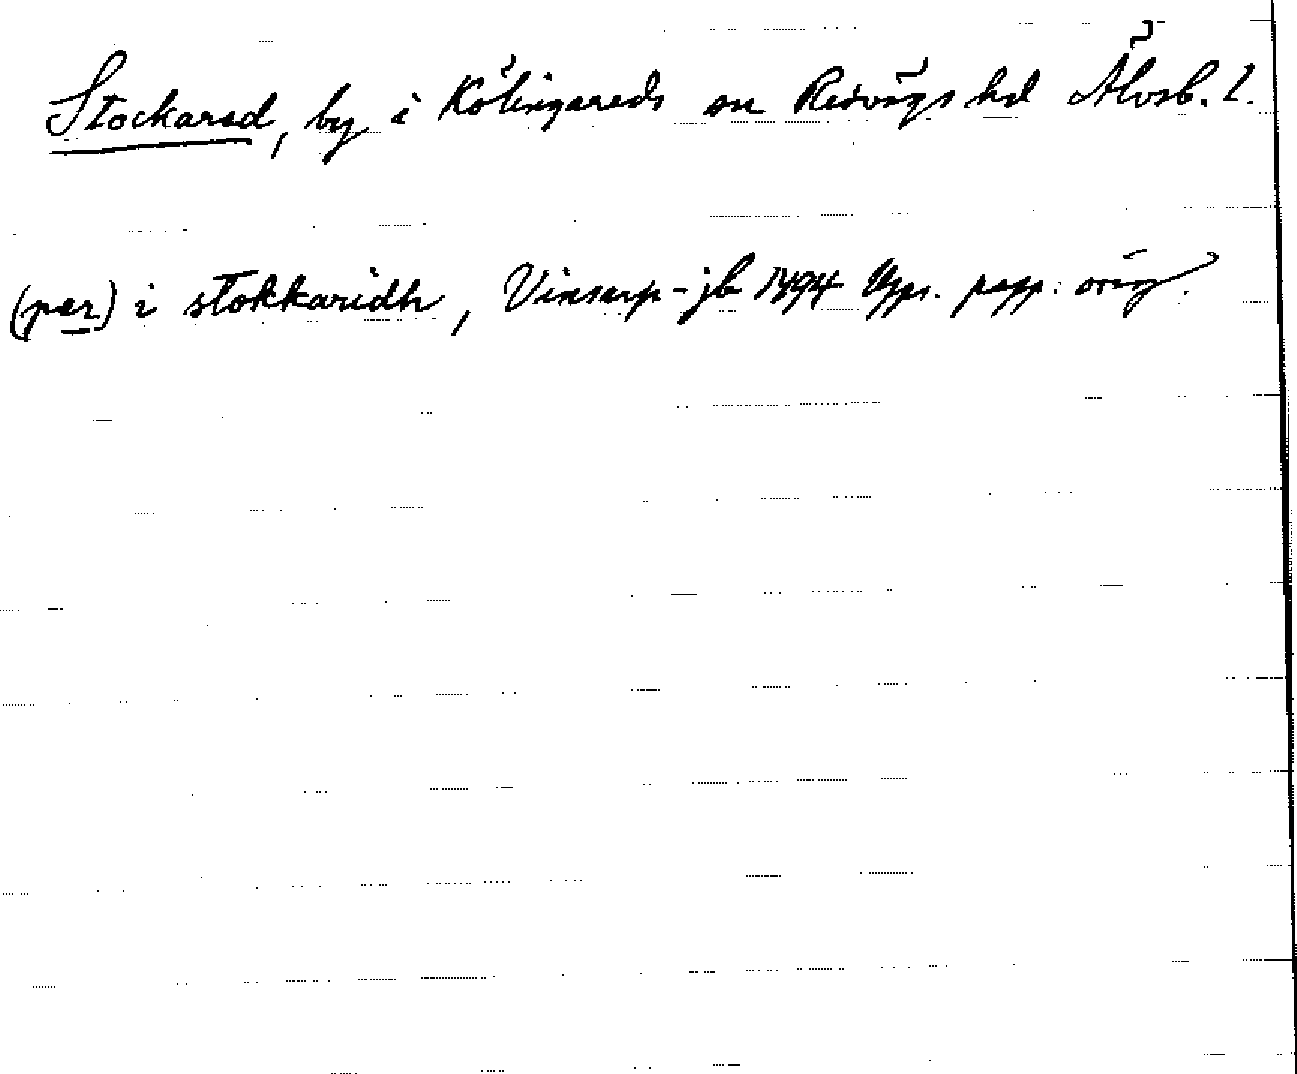 Stockared, by i Kölingareds sn Redvägs hd Älvsb. l.
(per) i stokkaridh, Vinsarp-jb 1494 Upps. papp. orig.